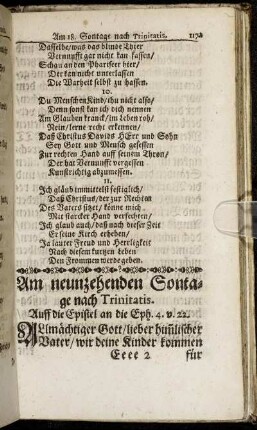 Am 18. Sontage nach Trinitatis.
Dasselbe/ was das blinde Thier
Vernunfft gar nicht kan fassen/
Schau an den Phariseer hier/
Die kan nicht unterlassen
Die Warheit selbst zu hassen.
10.
Du Menschen Kind/ thu nicht also/
Denn sonst kan ich dich nennen
Am Glauben kranck/ im Leben roh/
Nein/ lerne recht erkennen/
Daß Christus Davids HErr und Sohn
Sey Gott und Mensch gesessen
Zur rechten Hand auff seinem Thron/
Der hat Vernunfft vergessen
Kunstrichtig abzumessen.
Ich gläub immittelst festiglich/
Daß Christus/ der zur Rechten
Des Vaters sitzet/ könne mich
Mit starcker Hand verfechten/
Ich gläub auch/ daß nach dieser Zeit
Er seine Kirch erheben/
Ja lauter Freud und Herrligkeit
Nach diesem kurtzen Leben
Den Frommen werde geben.
11.
Am neunzehenden Sonta-
ge nach Trinitatis.
Auff die Epistel an die Eph. 4. v. 22.
ALlmächtiger Gott/ lieber hiɱlischer
Vater/ wir deine Kinder kommen
Eeee 2 für